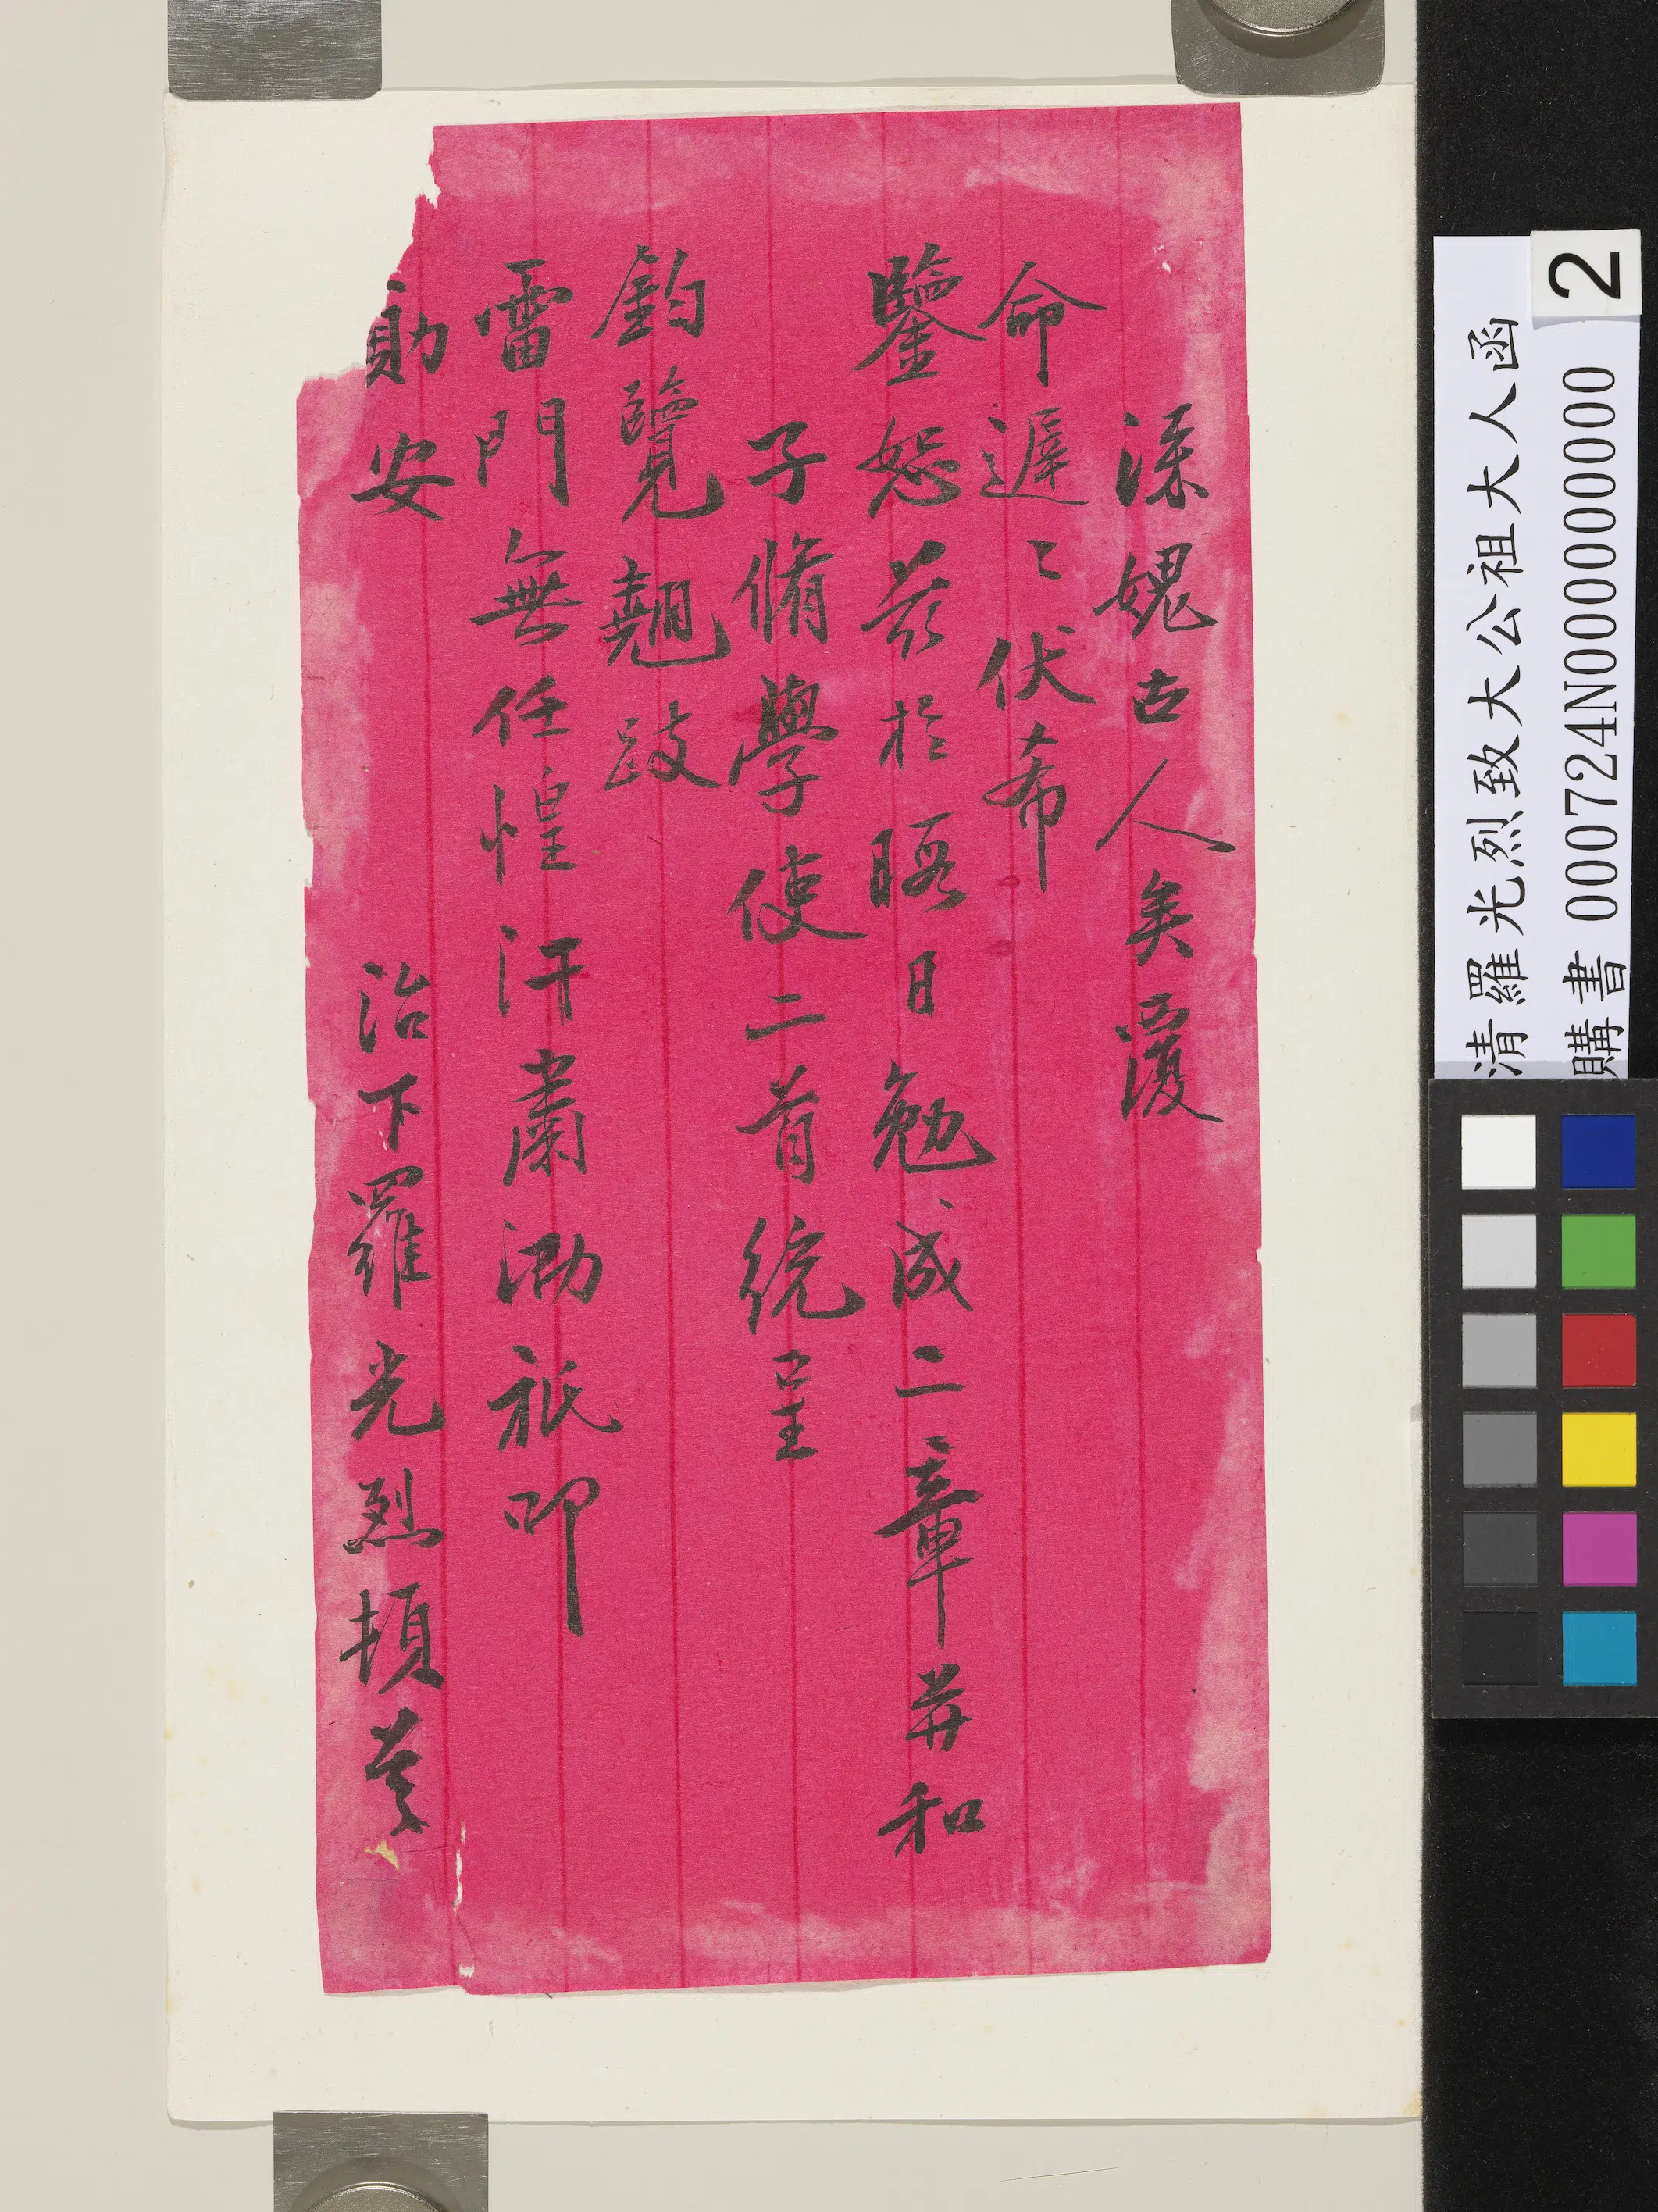 深媿古人矣覆
命遲〻伏希
鑒恕茲於暇日勉成二章并和
子脩學使二首統呈
鈞覽翹跂
雷門無任惶汗肅泐祗叩
勛安
治下羅光烈頓首
清羅光烈致大公祖大人函
購書 000724N000000000
2